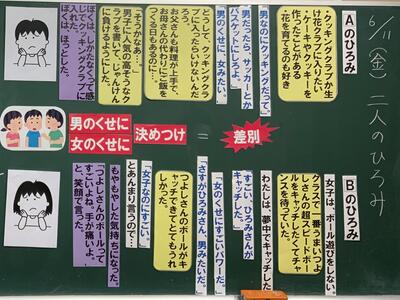 6/11(金) 二人のひろみ
Aのひろみ
クッキングクラブか生
け花クラブに入りたい
・ケーキやクッキーを
作ったことがある
・花を育てるのも好き
「男なのにクッキングだって。」
「男だったら、サッカーとか
バスケットにしろよ。」
「男のくせに、女みたい。」
どうして、クッキングクラ
ブに入ってはいけないんだ
お父さんも料理が上手で、
お母さんの代わりにご飯を
つくる日もあるのに…
「そっかなあ…」
男子に人気の高そうなク
ラブを書いて、じゃんけん
に負けるようにした。
ぼくは、しかたなくって感
じで、クッキングクラブに
入れた。
ぼくは、ほっとした。
男のくせに
女のくせに
決めつけ
=
差別
Bのひろみ
女子は、ボール遊びをしない。
クラスで一番うまいつよ
しさんの超スピードボー
ルをキャッチしたくてチャ
ンスを待っていた。
わたしは、夢中でキャッチした。
「すごい、ひろみさんが
キャッチした。」
「女のくせにすごいパワーだ。」
「さすがひろみさん、男みたいだ。」
つよしさんのボールがキ
ャッチできてとてもうれ
しかった。
「女子なのにすごい」
とあんまり言うので…
もやもやした気持ちになった。
「つよしさんのボールって
すごいよね。手が痛いよ。」
と、笑顔で言った。